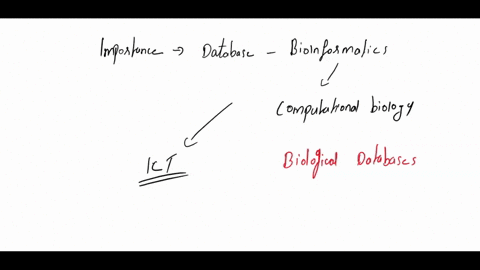 Importance → Database - Bioinformatics
Computational biology
ICT
Biological Databases